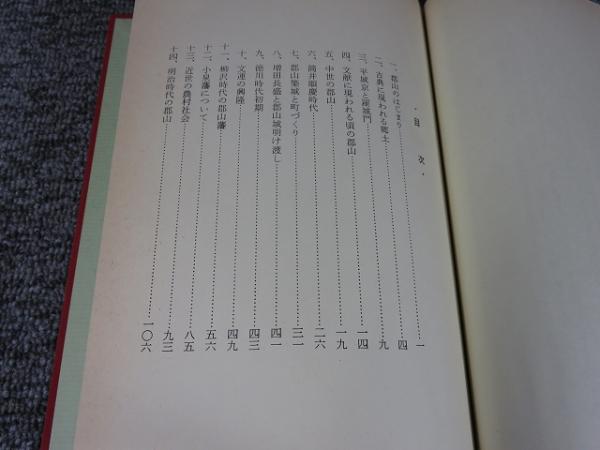 ・目次・
一、郡山のはじまり……一
二、古典に現われる郷土……四
三、平城京と羅城門……九
四、文献に現われる頃の郡山……一四
五、中世の郡山……一九
六、筒井順慶時代……二六
七、郡山築城と町づくり……三一
八、増田長盛と郡山城明け渡し……四一
九、徳川時代初期……四三
十、文運の興隆……四九
十一、柳沢時代の郡山藩……五六
十二、小泉藩について……八五
十三、近世の農村社会……九三
十四、明治時代の郡山……一〇六